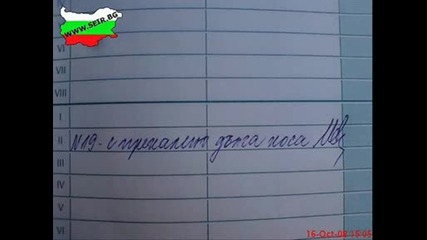 WWW.SEIR.BG
VI
VII
VIII
I
II
№19 - с прекалено дълга коса
III
IV
V
VI
16-Oct-08 15:05